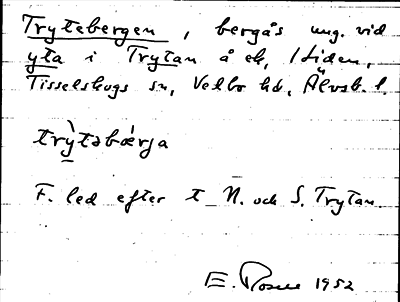 Trytebergen, bergås ung. vid
yta i Trytan å ek, Liden,
Tisselskogs sn, Vedbo hd, Älvsb. l.
trỳtəbœ́rja
F. led efter t N. och S. Trytan.
E. Rosell 1952